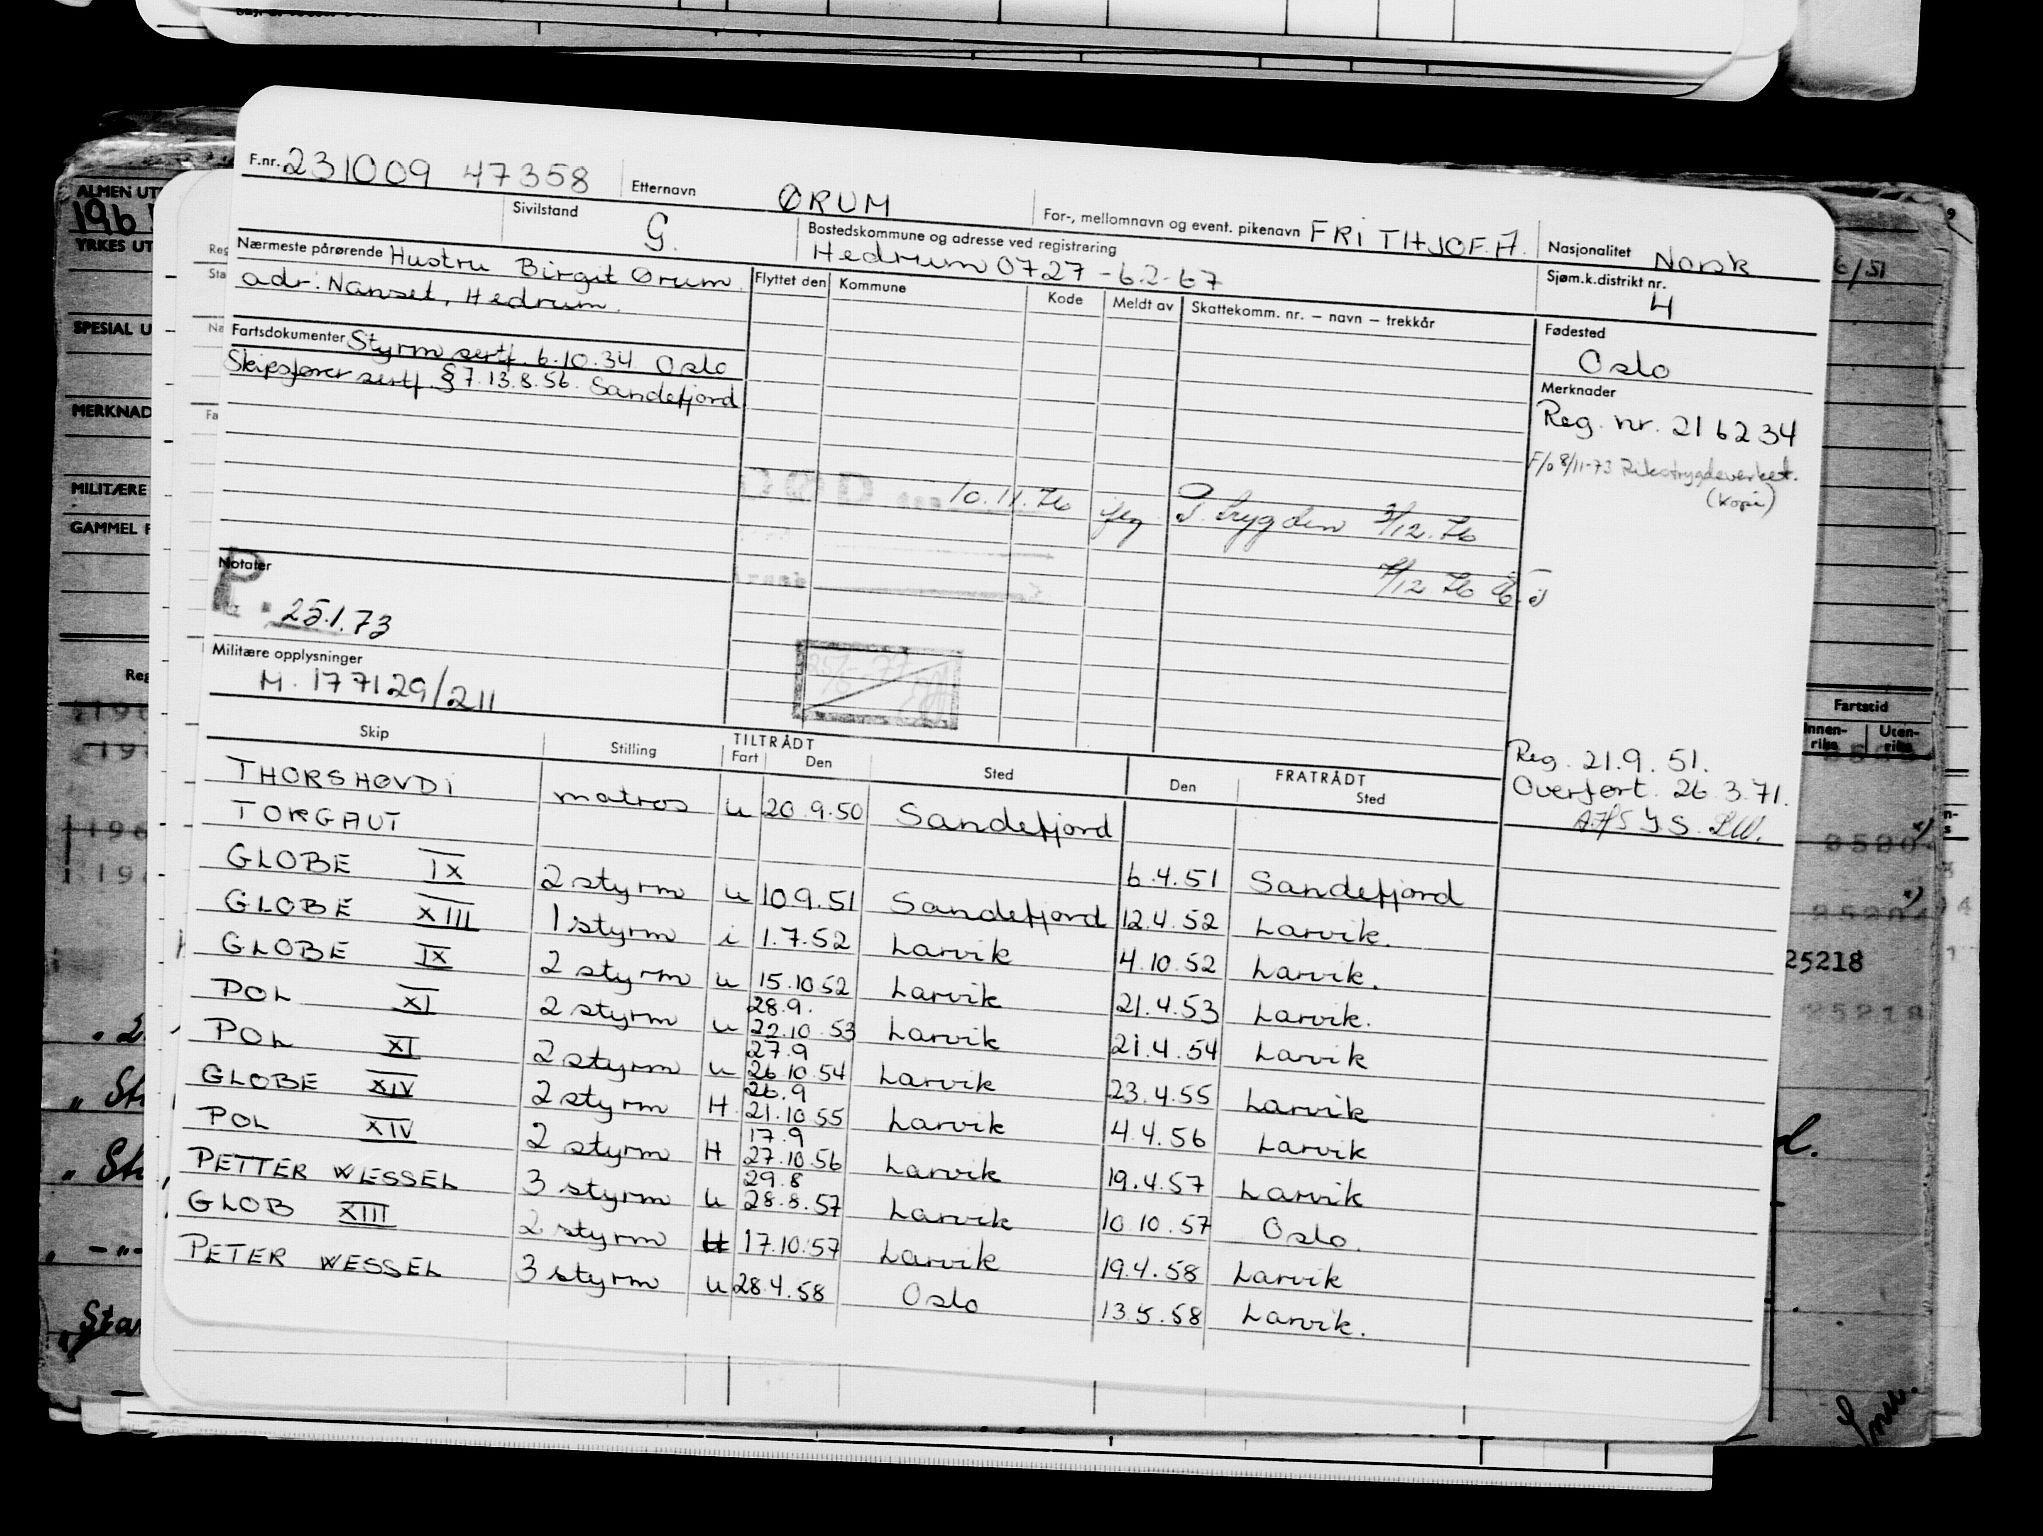 F.nr. 231009 47358 Etternavn ØRUM For-, mellomnavn og event. pikenavn FRITHJOF. A. Nasjonalitet Norsk
Sivilstand G. Bostedskommune og adresse ved registrering Hedrum 0727 - 6.2-67 Sjøm.k.distrikt nr. 4
Nærmeste pårørende Hustru Birgit Ørum
adr: Nanset, Hedrum.
Flyttet den Kommune Kode Meldt av Skattekomm. nr. – navn – trekkår
Fødested
Oslo
Fartsdokumenter Styrm sertf. 6.10.34 Oslo
Skipsfører sertf. §7. 13.8.56. Sandefjord
Merknader
Reg. nr. 216234
F/o 8/11-73 Rikstrygdeverket.
(kopi)
10.11.76 P. Trygden 3/12.76
Notater
P
25.1.73
Militære opplysninger
M. 177129/211
Reg. 21.9.51.
Overført. 26.3.71.
Skip Stilling TILTRÅDT Fart Den Sted FRATRÅDT Den Sted
THORSHØVDI matros u 20.9.50 Sandefjord
TORGAUT 6.4.51 Sandefjord
GLOBE IX 2 styrm u 10.9.51 Sandefjord 12.4.52 Larvik.
GLOBE XIII 1 styrm i 1.7.52 Larvik 4.10.52 Larvik.
GLOBE IX 2 styrm u 15.10.52 Larvik 21.4.53 Larvik.
POL XI 2 styrm u 28.9. 22.10.53 Larvik 21.4.54 Larvik
POL XI 2 styrm u 27.9 26.10.54 Larvik 23.4.55 Larvik
GLOBE XIV 2 styrm H 26.9 21.10.55 Larvik 4.4.56 Larvik
POL XIV 2 styrm H 17.9 27.10.56 Larvik 19.4.57 Larvik
PETTER WESSEL 3 styrm u 29.8 28.8.57 Larvik 10.10.57 Oslo.
GLOB XIII 2 styrm H 17.10.57 Larvik 19.4.58 Larvik
PETER WESSEL 3 styrm u 28.4.58 Oslo 13.5.58 Larvik.
ALMEN UT
YRKES UT
SPESIAL U
MERKNAD
MILITÆRE
GAMMEL F
Reg
Fartstid
Innen-
riks
Uten-
riks
25218